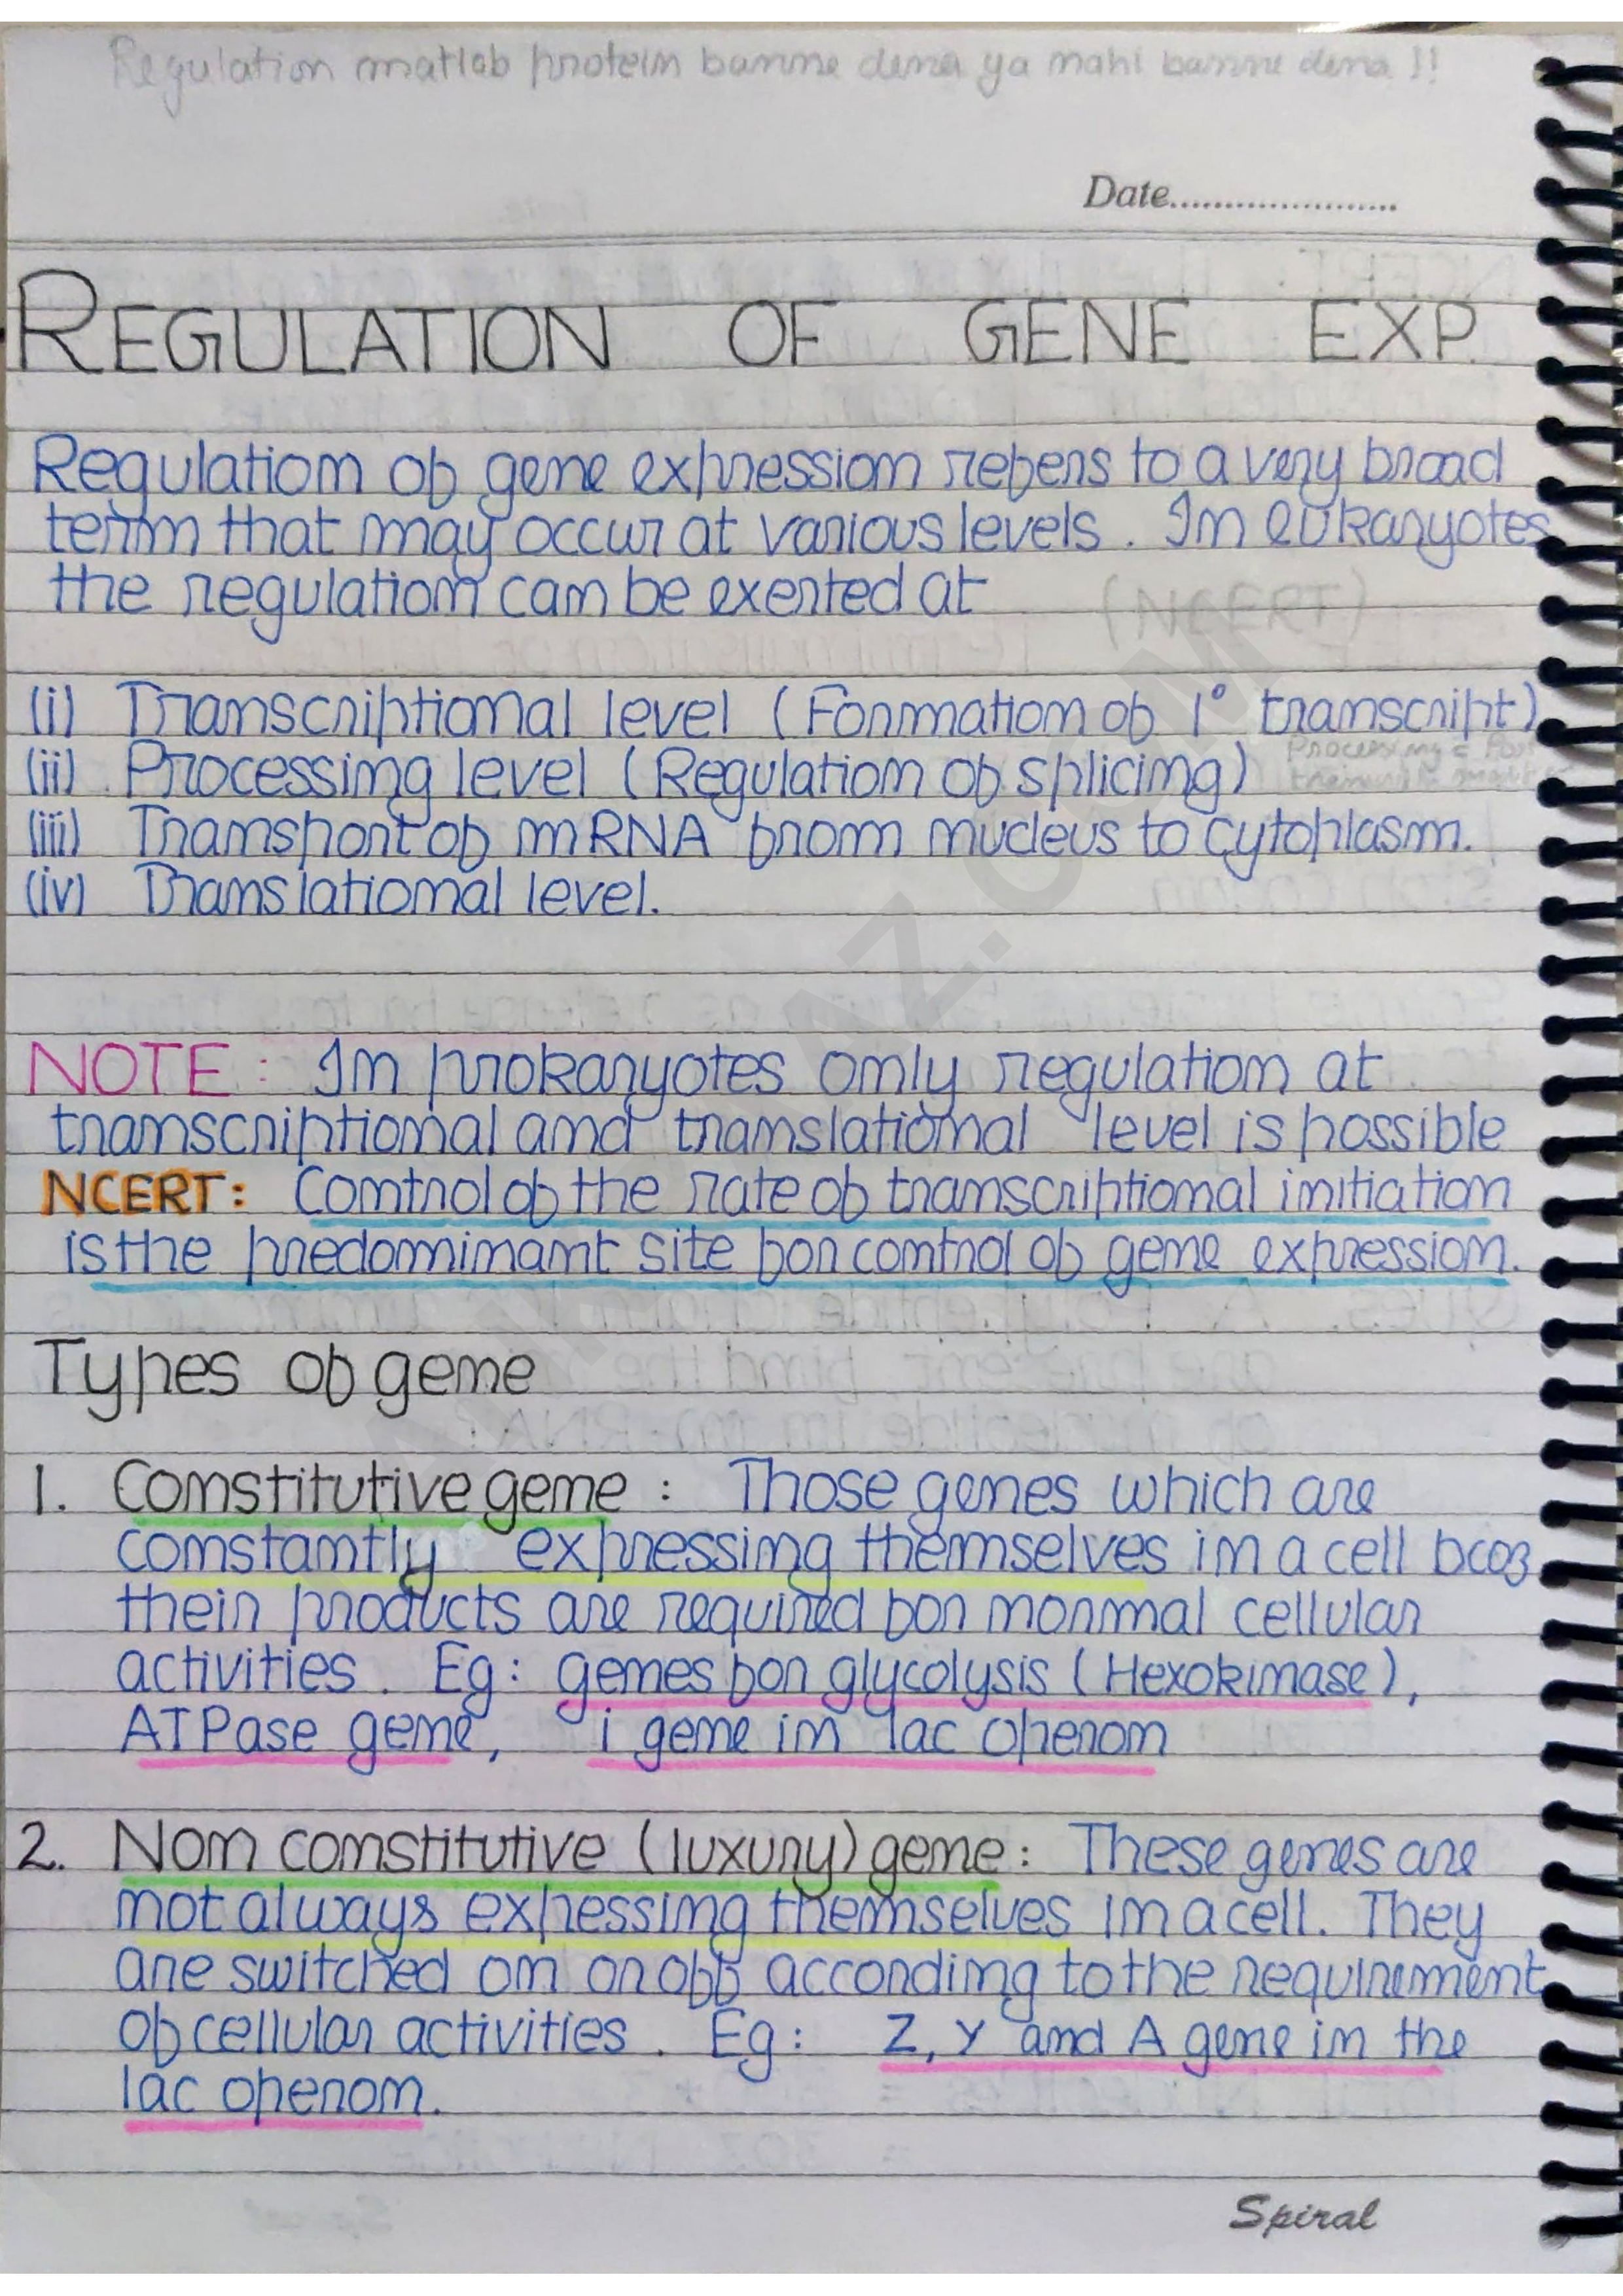 Regulation matlab protein banne dena ya nahi banne dena !!
Date......................
REGULATION OF GENE EXP.
Regulation of gene expression refers to a very broad
term that may occur at various levels. In eukaryotes
the regulation can be exerted at (NCERT)
(i) Transcriptional level (Formation of 1° transcript)
(ii) Processing level (Regulation of splicing)
Processing = Post
(iii) Transport of mRNA from nucleus to cytoplasm.
(iv) Translational level.
NOTE: In prokaryotes only regulation at
transcriptional and translational level is possible
NCERT: Control of the rate of transcriptional initiation
is the predominant site for control of gene expression.
Types of gene
1. Constitutive gene : Those genes which are
constantly expressing themselves in a cell bcoz
their products are required for normal cellular
activities. Eg: genes for glycolysis (Hexokinase),
ATPase gene, i gene in lac operon
2. Non constitutive (luxury) gene: These genes are
not always expressing themselves in a cell. They
are switched on or off according to the requirement
of cellular activities. Eg: Z, Y and A gene in the
lac operon.
Spiral